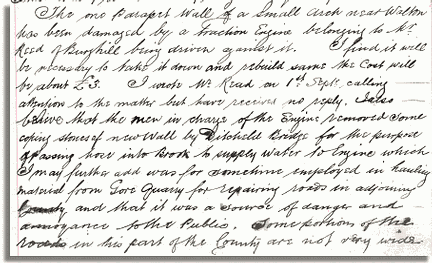 The one Parapet Wall of a Small Arch near Walton
has been damaged by a traction Engine belonging to Mr.
Read of Burghill being driven against it. I find it will
be necessary to take it down and rebuild same the Cost will
be about £3. I wrote Mr. Read on 1st Sept. calling
attention to the matter but have receivd no reply. I also
believe that the men in charge of the Engine removed some
coping stones of new Wall by Ditchfield Bridge for the purpose
of passing hose into Brook to supply Water to Engine which
I may further add was for sometime employed in hauling
material from Gore Quarry for repairing roads in adjoining
and that it was a source of danger and
annoyance to the Public. Some portions of the
roads in this part of the County are not very wide